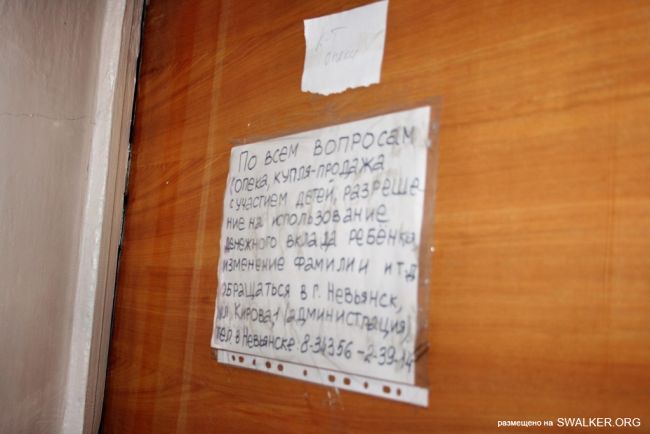 К-Т
опеки
По всем вопросам
(опека, купля-продажа
с участием детей, разреше-
ние на использование
денежного вклада ребёнка,
изменение фамилии и т.д
обращаться в г. Невьянск,
ул. Кирова 1 (администрация)
тел. в Невьянске 8-34356-2-39-14
размещено на SWALKER.ORG